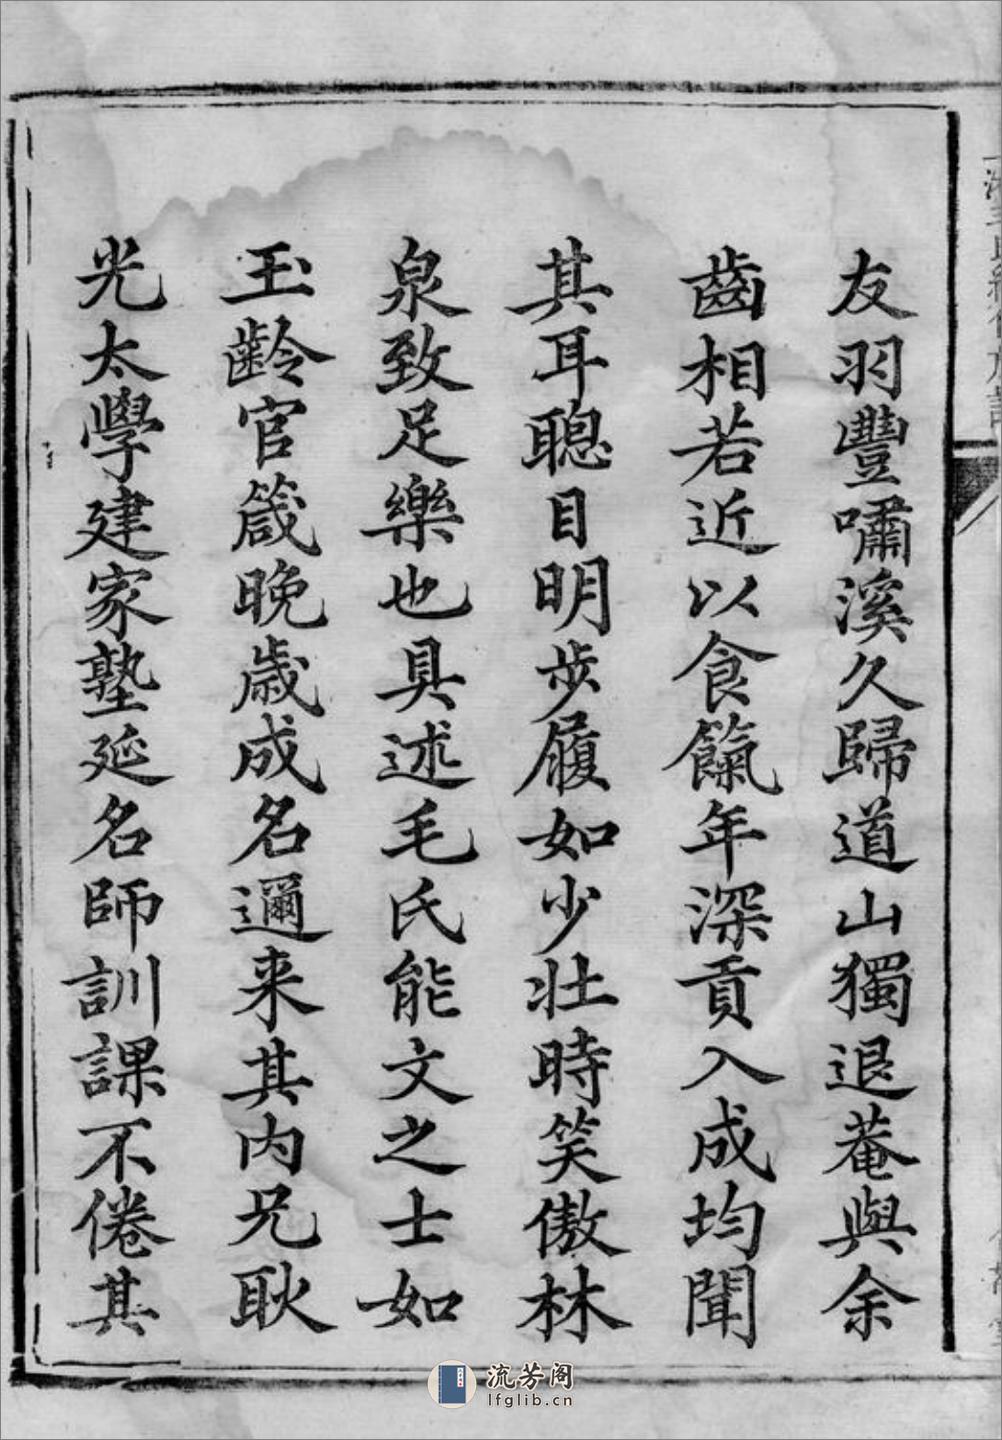 友羽豐嘯溪久歸道山獨退菴與余
齒相若近以食餼年深貢入成均聞
其耳聰目明步履如少壯時笑傲林
泉致足樂也具述毛氏能文之士如
玉齡官箴晚歳成名邇来其内兄耿
光太學建家塾延名師訓課不倦其
流芳阁
lfglib.cn